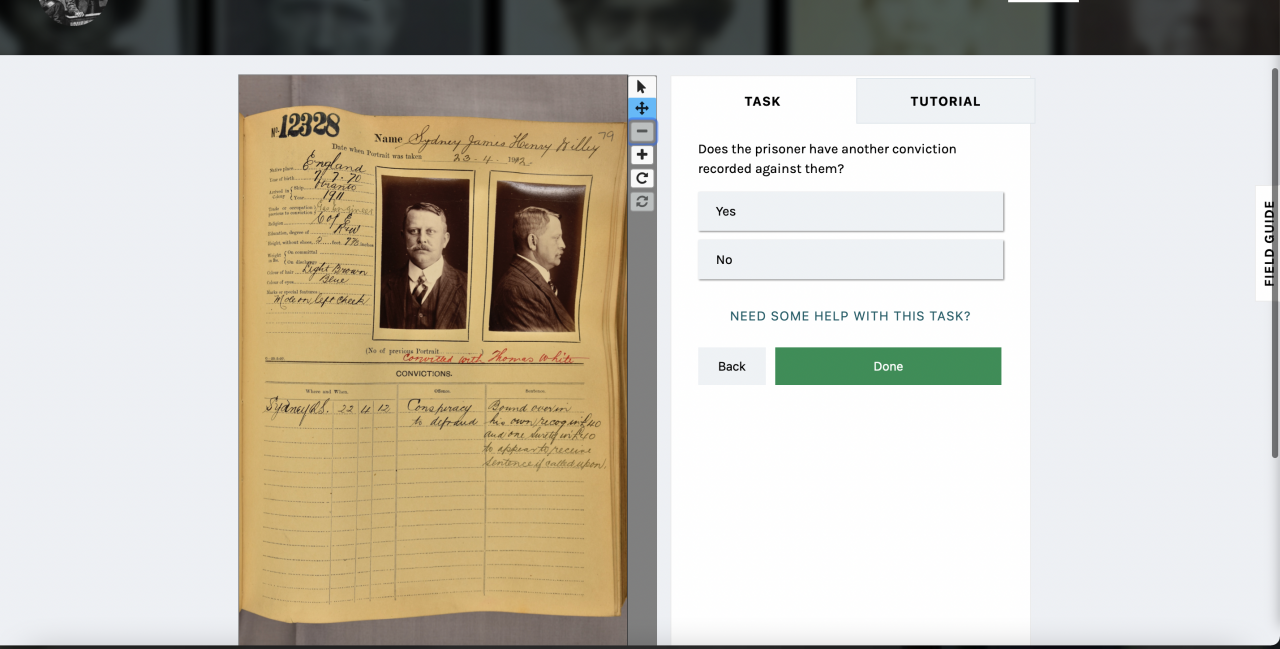 No. 12328
79
Name Sydney James Henry Willey
Date when Portrait was taken 23-4-1912
Native place England
Date of birth 7.7.70
Arrived in Colony { Ship
Year 1911
Trade or occupation previous to conviction
Religion C of E
Education, degree of R & W
Height, without shoes 5 feet 7¾ inches
Weight in lbs. { On committal
On discharge
Colour of hair Light Brown
Colour of eyes Blue
Marks or special features
Mole on left cheek
(No of previous Portrait
Convicted with Thomas White
CONVICTIONS.
Where and When. Offence. Sentence.
Sydney Q.S. 22 4 12 Conspiracy Bound over in
to defraud his own recog in £40
and one surety in £40
to appear to receive
sentence if called upon.
TASK
TUTORIAL
Does the prisoner have another conviction
recorded against them?
Yes
No
NEED SOME HELP WITH THIS TASK?
Back
Done
FIELD GUIDE